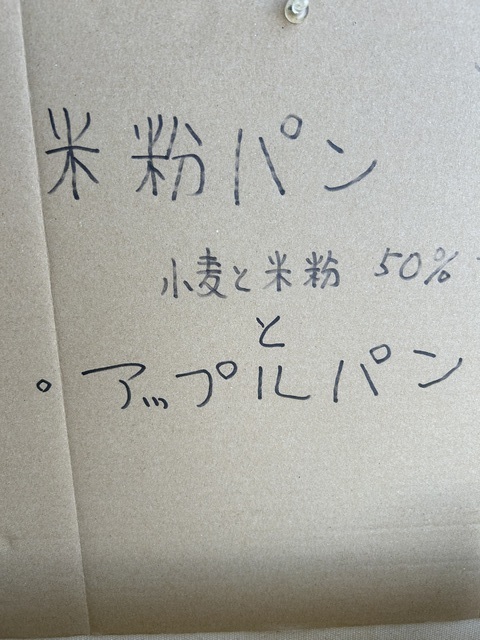 米粉パン
小麦と米粉 50%
と
。アップルパン